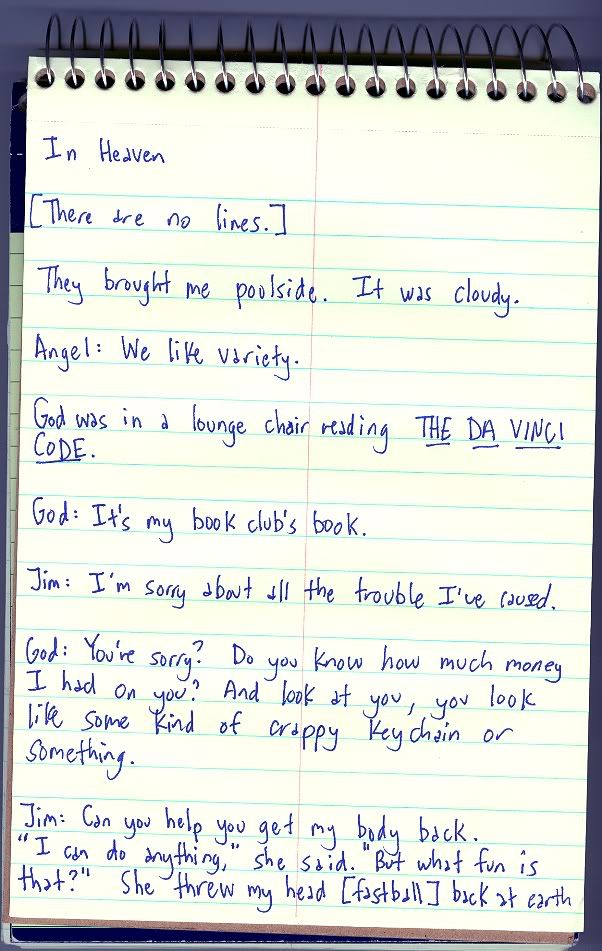 In Heaven
[There are no lines.]
They brought me poolside. It was cloudy.
Angel: We like variety.
God was in a lounge chair reading THE DA VINCI
CODE.
God: It's my book club's book.
Jim: I'm sorry about all the trouble I've caused.
God: You're sorry? Do you know how much money
I had on you? And look at you, you look
like some kind of crappy keychain or
something.
Jim: Can you help you get my body back.
"I can do anything," she said. "But what fun is
that?" She threw my head [fastball] back at earth